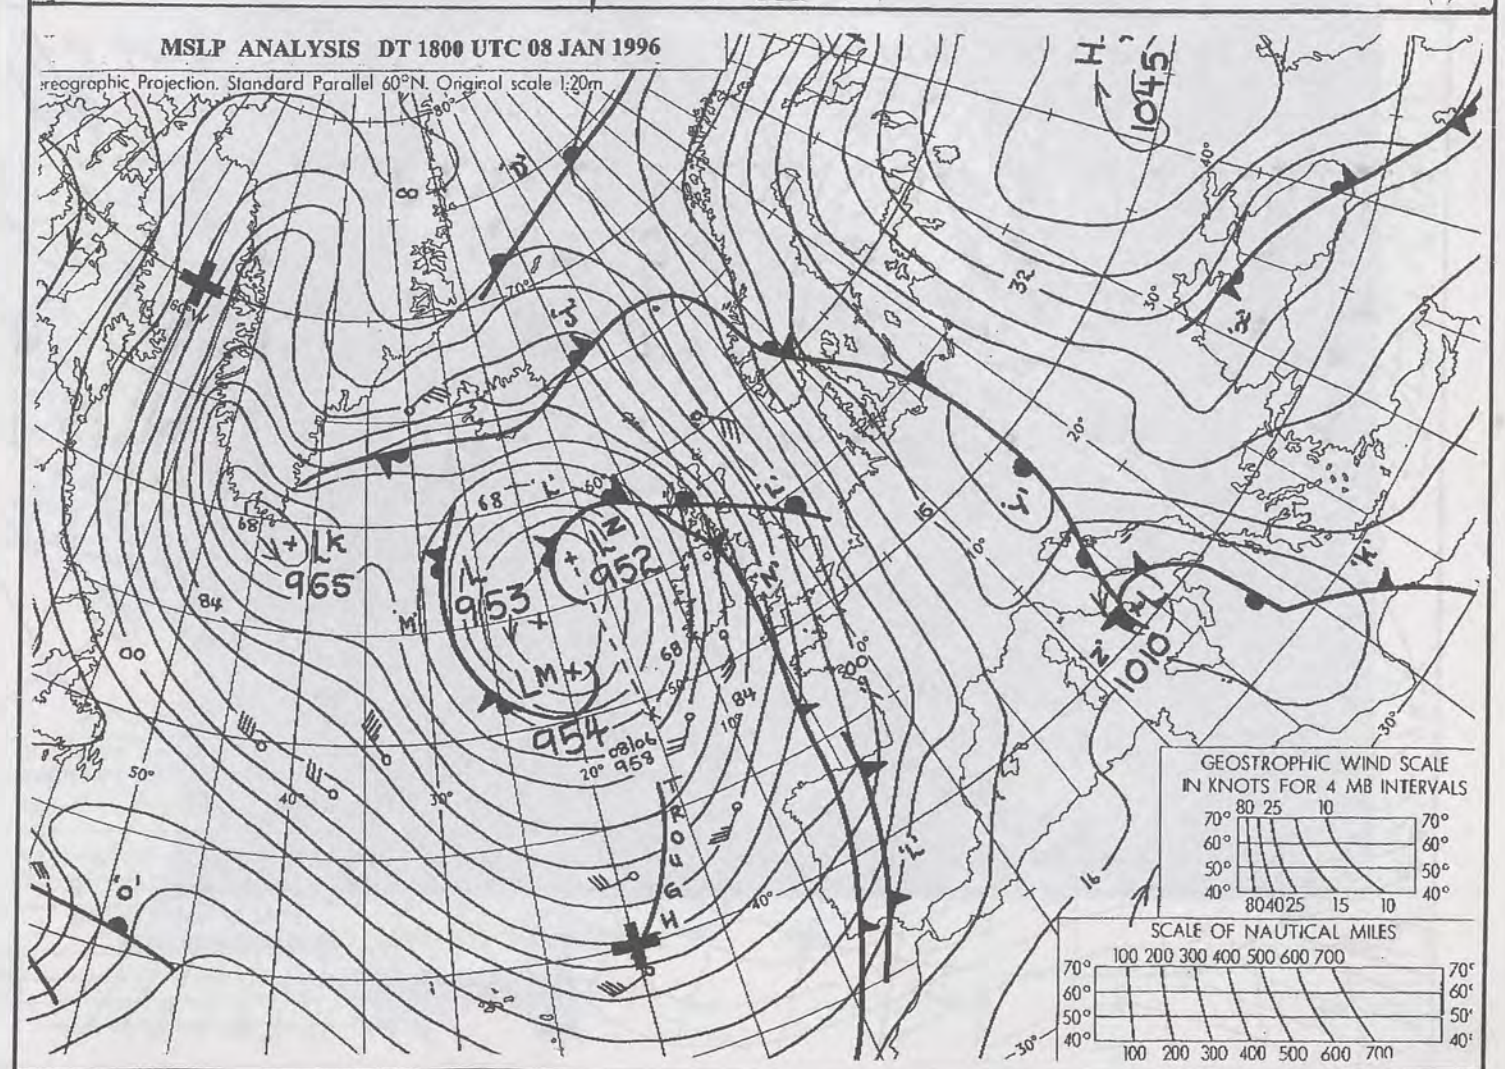 MSLP ANALYSIS DT 1800 UTC 08 JAN 1996
reographic Projection. Standard Parallel 60°N. Original scale 1:20m
80°
H
1045
40°
'D'
8
60°W
70°
'J'
32
30°
'X'
20°
68
'L'
60°
'T'
16
'Y'
10°
68
LK
965
LN
952
L
953
'K'
84
'M'
'N'
LX
1010
'Z'
00
LM
954
68
50°
0°
84
10°
08/06
958
20°
30°
50°
40°
30°
TROUGH
'L'
40°
'O'
16
30°
GEOSTROPHIC WIND SCALE
IN KNOTS FOR 4 MB INTERVALS
80 25 10
70° 70°
60° 60°
50° 50°
40° 40°
80 40 25 15 10
SCALE OF NAUTICAL MILES
100 200 300 400 500 600 700
70° 70°
60° 60°
50° 50°
40° 40°
100 200 300 400 500 600 700